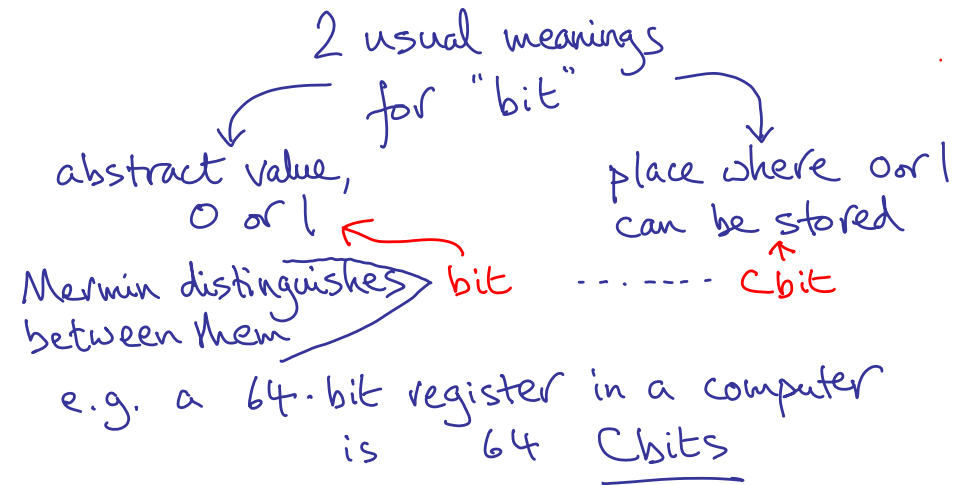 2 usual meanings
for "bit"
abstract value,
0 or 1
place where 0 or 1
can be stored
Mermin distinguishes
between them
bit ........ Cbit
e.g. a 64-bit register in a computer
is 64 Cbits